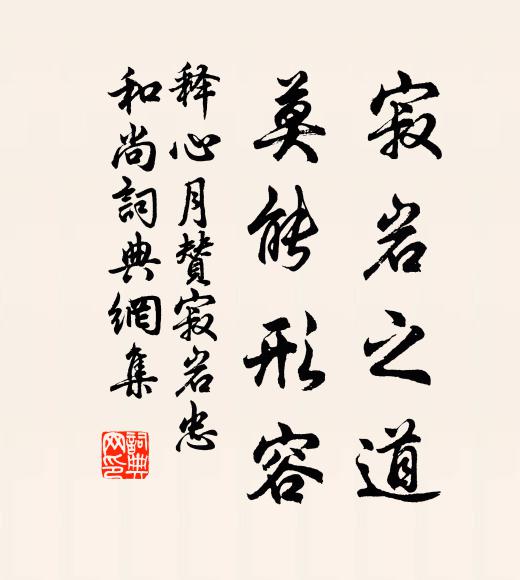 寂岩之道
莫能形容
释心月赞寂岩忠
和尚詞典網集
詞典网印